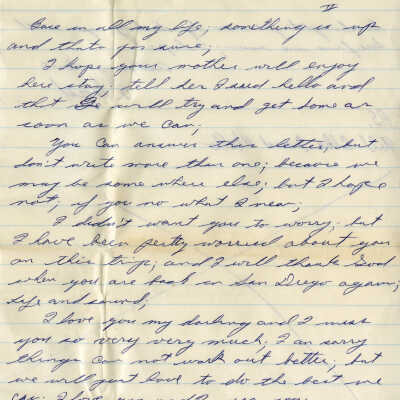 IV
Once in all my life; something is up
and thats for sure;
I hope your mother will enjoy
here stay, tell her I said hello and
that We will try and get home as
soon as we can;
You can answer this letter, but
don't write more than one; because we
may be some where else; but I hope
not; if you no what I mean;
I didn't want you to worry; but
I have been pretty worried about you
on this trip; and I will thank God
when you are back in San Diego again;
safe and sound;
I love you my darling and I miss
you so very very much; I am sorry
things can not work out better; but
we will just have to do the best we
can; I love you and